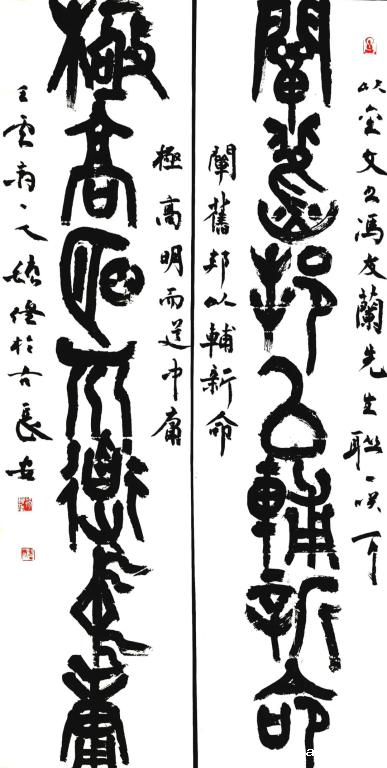 以金文书馮友蘭先生聯
闡舊邦以輔新命
闡舊邦以輔新命
極高明而道中庸
極高明而道中庸
於古長安